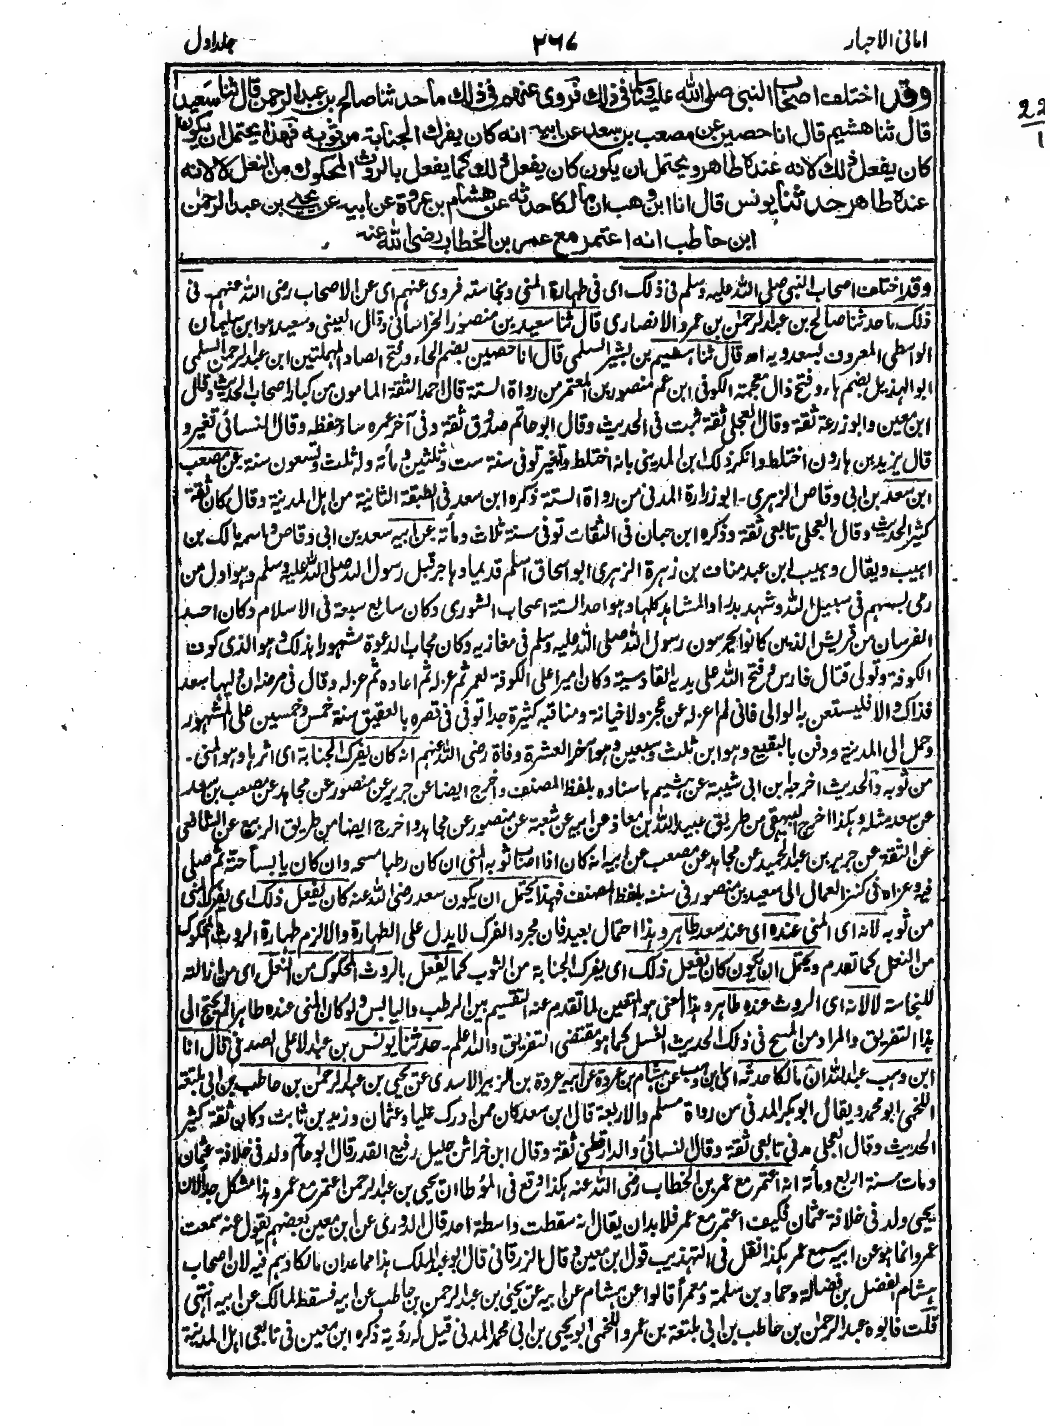 امانی الاحبار ۲۶۷ جلد اول
وقد اختلف اصحاب النبی صلی الله علیه وسلم فی ذلك فروی عنهم فی ذلك ما حدثنا صالح بن عبد الرحمن قال ثنا سعید
قال ثنا هشیم قال انا حصین عن مصعب بن سعد عن ابیه انه كان یفرك الجنابة من ثوبه فهذا یحتمل ان یكون
كان یفعل ذلك لانه عنده طاهر ویحتمل ان یكون كان یفعل ذلك كما یفعل بالروث المحكوك من النعل لا لانه
عنده طاهر حدثنا یونس قال انا ابن وهب ان مالكا حدثه عن هشام بن عروة عن ابیه عن یحیی بن عبد الرحمن
ابن حاطب انه اعتمر مع عمر بن الخطاب رضی الله عنه
وقد اختلف اصحاب النبی صلی الله علیه وسلم فی ذلك ای فی طهارة المنی ونجاسته فروی عنهم ای عن الاصحاب رضی الله عنهم فی
ذلك ما حدثنا صالح بن عبد الرحمن بن عمرو الانصاری قال ثنا سعید بن منصور الخراسانی وقال العینی وسعید هو ابن سلیمان
الواسطی المعروف بسعدویه اه قال ثنا هشیم بن بشیر السلمی قال انا حصین بضم الحاء وفتح الصاد المهملتین ابن عبد الرحمن السلمی
ابو الهذیل بضم هاء وفتح ذال معجمة الكوفی ابن عم منصور بن المعتمر من رواة الستة قال احمد الثقة المامون من كبار اصحاب الحدیث وقال
ابن معین وابو زرعة ثقة وقال العجلی ثقة ثبت فی الحدیث وقال ابو حاتم صدوق ثقة وفی آخر عمره ساء حفظه وقال النسائی تغیر و
قال یزید بن هارون اختلط وانكر ذلك ابن المدینی بانه اختلط وتغیر توفی سنة ست وثلثین ومأته وله ثلث وتسعون سنة عن مصعب
ابن سعد بن ابی وقاص الزهری ـ ابو زرارة المدنی من رواة الستة ذكره ابن سعد فی الطبقة الثانیة من اهل المدینة وقال كان ثقة
كثیر الحدیث وقال العجلی تابعی ثقة وذكره ابن حبان فی الثقات توفی سنة ثلاث ومأته عن ابیه سعد بن ابی وقاص واسمه مالك بن
اهیب ویقال وهیب ابن عبد مناف بن زهرة الزهری ابو اسحاق اسلم قدیما وهاجر قبل رسول الله صلی الله علیه وسلم وهو اول من
رمی بسهم فی سبیل الله وشهد بدرا والمشاهد كلها وهو احد الستة اصحاب الشوری وكان سابع سبعة فی الاسلام وكان احد
الفرسان من قریش الذین كانوا یحرسون رسول الله صلی الله علیه وسلم فی مغازیه وكان مجاب الدعوة مشهورا بذلك وهو الذی كوف
الكوفة وتولی قتال فارس وفتح الله علی یدیه القادسیة وكان امیرا علی الكوفة لعمر ثم عزله ثم اعاده ثم عزله وقال فی مرضه ان ولیها سعد
فذاك والا فلیستعن به الوالی فانی لم اعزله عن عجز ولا خیانة ومناقبه كثیرة جدا توفی فی قصره بالعقیق سنة خمس وخمسین علی المشهور
وحمل الی المدینة ودفن بالبقیع وهو ابن ثلث وسبعین وهو آخر العشرة وفاة رضی الله عنهم انه كان یفرك الجنابة ای اثرها وهو المنی ـ
من ثوبه والحدیث اخرجه ابن ابی شیبة عن هشیم باسناده بلفظ المصنف واخرج ایضا عن جریر عن منصور عن مجاهد عن مصعب بن سعد
عن سعد مثله وهكذا اخرج البیهقی من طریق عبید الله بن معاذ عن ابیه عن شعبة عن منصور عن مجاهد واخرج ایضا من طریق الربیع عن الشافعی
عن الثقة عن جریر بن عبد الحمید عن مجاهد عن مصعب عن ابیه انه كان اذا اصاب ثوبه المنی ان كان رطبا مسحه وان كان یابسا حته ثم صلی
فیه وعزاه فی كنز العمال الی سعید بن منصور فی سننه بلفظ المصنف فهذا یحتمل ان یكون سعد رضی الله عنه كان یفعل ذلك ای یفرك المنی
من ثوبه لانه ای المنی عنده ای عند سعد طاهر وهذا احتمال بعید فان مجرد الفرك لا یدل علی الطهارة والا لزم طهارة الروث المحكوك
من النعل كما تقدم ویحتمل ان یكون كان یفعل ذلك ای یفرك الجنابة من الثوب كما یفعل بالروث المحكوك من النعل ای من ازالته
للنجاسة لا لانه ای الروث عنده طاهر وهذا المعنی هو المتعین لما تقدم عنه التقسیم بین الرطب والیابس ولو كان المنی عنده طاهرا لم یحتج الی
هذا التفریق والمراد من المسح فی ذلك الحدیث الغسل كما هو مقتضی التفریق والله اعلم ـ حدثنا یونس بن عبد الاعلی الصدفی قال انا
ابن وهب عبد الله ان مالكا حدثه ای ابن وهب عن هشام بن عروة عن ابیه عروة بن الزبیر الاسدی عن یحیی بن عبد الرحمن بن حاطب بن ابی بلتعة
اللخمی ابو محمد ویقال ابو بكر المدنی من رواة مسلم والاربعة قال ابن سعد كان ممن ادرك علیا وعثمان وزید بن ثابت وكان ثقة كثیر
الحدیث وقال العجلی مدنی تابعی ثقة وقال النسائی والدارقطنی ثقة وقال ابن خراش جلیل رفیع القدر قال ابو حاتم ولد فی خلافة عثمان
ومات سنة اربع ومأته انه اعتمر مع عمر بن الخطاب رضی الله عنه هكذا وقع فی الموطا ان یحیی بن عبد الرحمن اعتمر مع عمر وهذا مشكل جدا لان
یحیی ولد فی خلافة عثمان فكیف اعتمر مع عمر فلا بد ان یقال انه سقطت واسطة احد قال الدوری عن ابن معین بعضهم یقول عنه سمعت
عمر وانما هو عن ابیه سمع عمر هكذا نقل فی التهذیب قول ابن معین وقال الزرقانی قال ابو عبد الملك هذا مما عد ان مالكا وهم فیه لان اصحاب
هشام الفضل بن فضالة وحماد بن سلمة ومعمرا قالوا عن هشام عن ابیه عن یحیی بن عبد الرحمن بن حاطب عن ابیه فسقط لمالك عن ابیه انتهی
قلت فابوه عبد الرحمن بن حاطب بن ابی بلتعة بن عمرو اللخمی ابو یحیی بن ابی محمد المدنی قیل له رؤیة ذكره ابن معین فی تابعی اهل المدینة